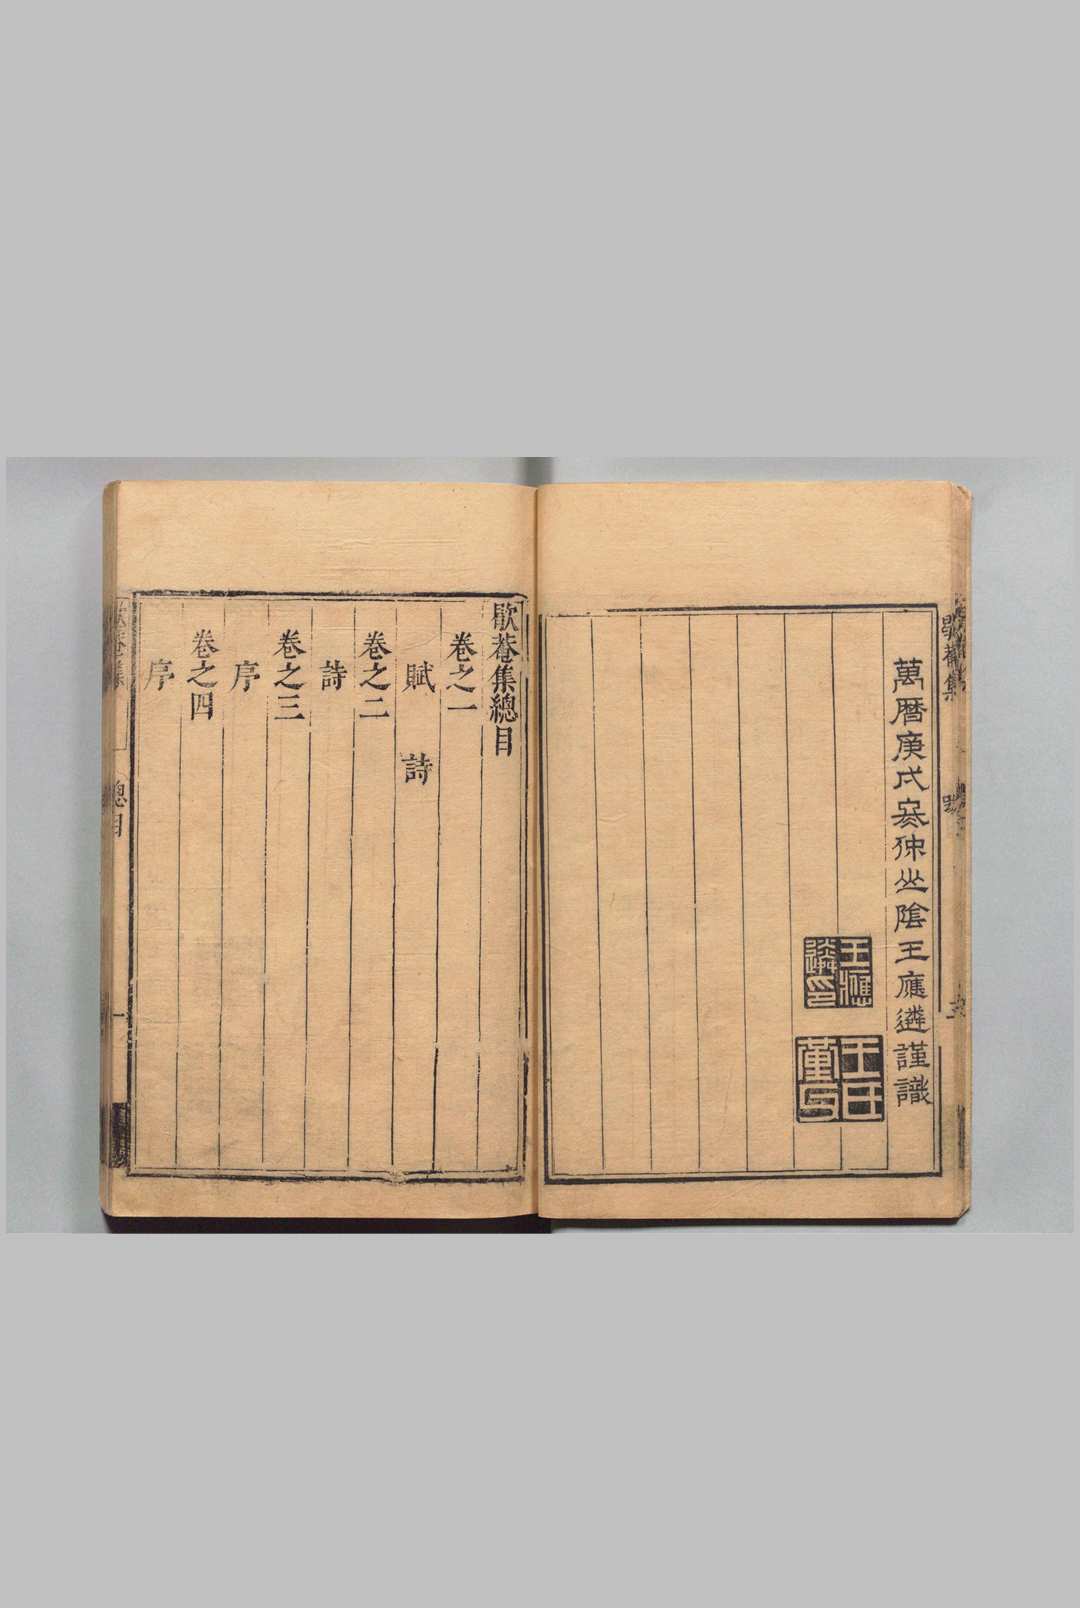 萬曆庚戌寒仲山陰王應遴謹識
王應遴印
王氏董父
歇菴集總目
卷之一
賦 詩
卷之二
詩
卷之三
序
卷之四
序
歇菴集
總目
一